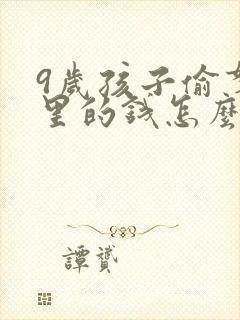 9歲孩子偷
里的錢怎麼
譚贇